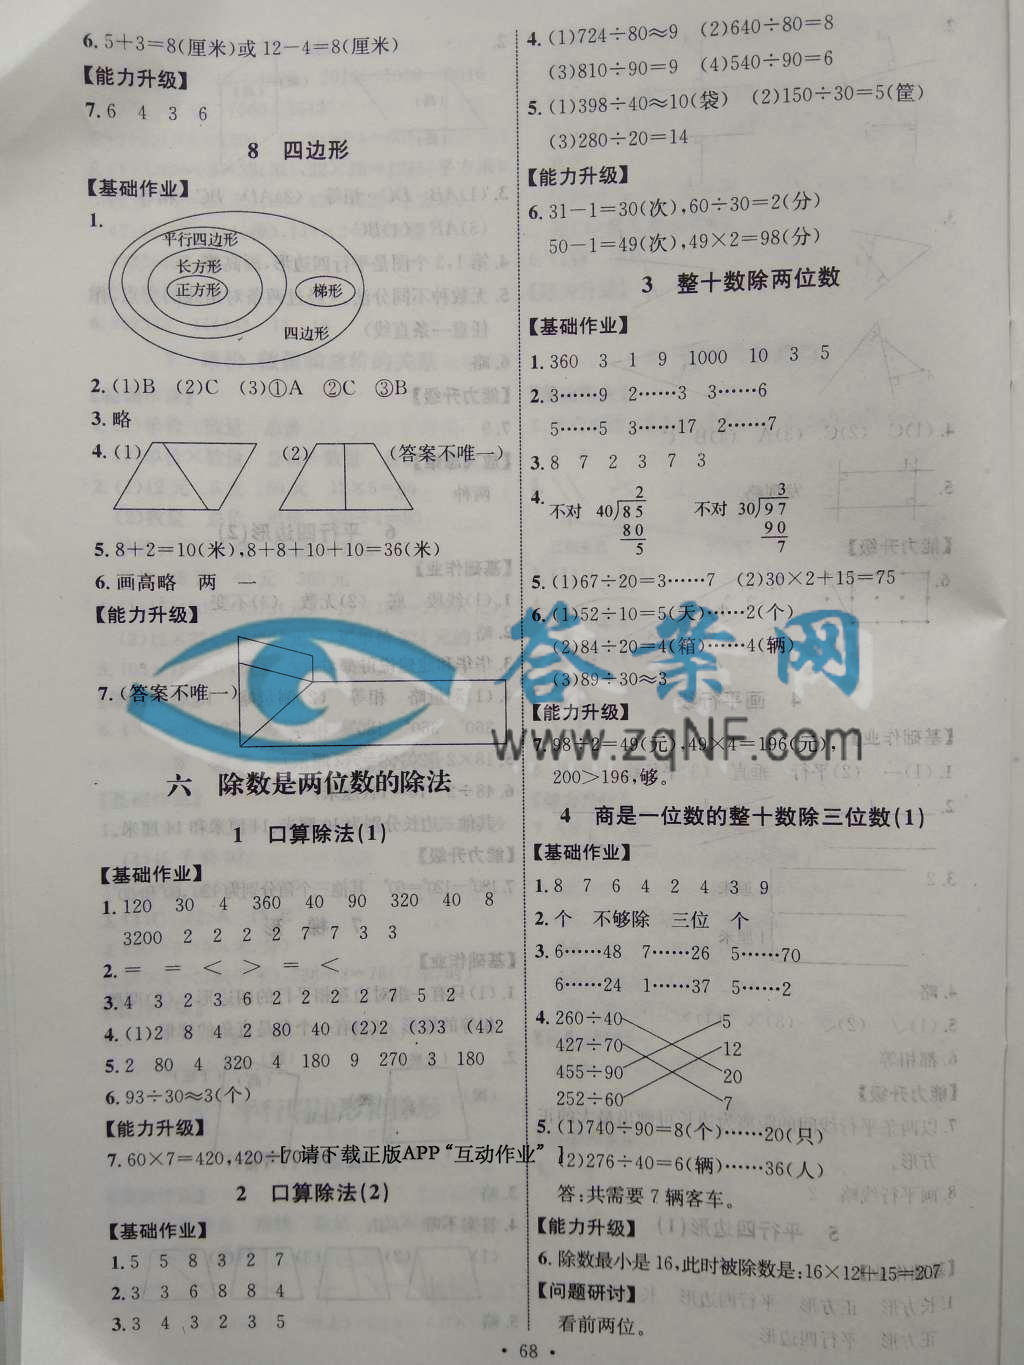 6. 5+3=8(厘米)或 12-4=8(厘米)
【能力升级】
7. 6 4 3 6
8 四边形
【基础作业】
1.
平行四边形
长方形
正方形
梯形
四边形
2. (1)B (2)C (3)①A ②C ③B
3. 略
4. (1) (2) (答案不唯一)
5. 8+2=10(米),8+8+10+10=36(米)
6. 画高略 两 一
【能力升级】
7. (答案不唯一)
六 除数是两位数的除法
1 口算除法(1)
【基础作业】
1. 120 30 4 360 40 90 320 40 8
3200 2 2 2 2 7 7 3 3
2. = = < > = <
3. 4 3 2 3 6 2 2 2 2 7 5 2
4. (1)2 8 4 2 80 40 (2)2 (3)3 (4)2
5. 2 80 4 320 4 180 9 270 3 180
6. 93÷30≈3(个)
【能力升级】
7. 60×7=420,420÷70=6
2 口算除法(2)
【基础作业】
1. 5 5 8 3 2 7
2. 3 3 6 8 8 4
3. 3 4 3 2 3 5
4. (1)724÷80≈9 (2)640÷80=8
(3)810÷90=9 (4)540÷90=6
5. (1)398÷40≈10(袋) (2)150÷30=5(筐)
(3)280÷20=14
【能力升级】
6. 31-1=30(次),60÷30=2(分)
50-1=49(次),49×2=98(分)
3 整十数除两位数
【基础作业】
1. 360 3 1 9 1000 10 3 5
2. 3……9 2……3 3……6
5……5 3……17 2……7
3. 8 7 2 3 7 3
4.
2 3
不对 40)85 不对 30)97
80 90
5 7
5. (1)67÷20=3……7 (2)30×2+15=75
6. (1)52÷10=5(天)……2(个)
(2)84÷20=4(箱)……4(辆)
(3)89÷30≈3
【能力升级】
7. 98÷2=49(元),49×4=196(元),
200>196,够。
4 商是一位数的整十数除三位数(1)
【基础作业】
1. 8 7 6 4 2 4 3 9
2. 个 不够除 三位 个
3. 6……48 7……26 5……70
6……24 1……37 5……2
4. 260÷40 5
427÷70 12
455÷90 20
252÷60 7
5. (1)740÷90=8(个)……20(只)
(2)276÷40=6(辆)……36(人)
答:共需要 7 辆客车。
【能力升级】
6. 除数最小是 16,此时被除数是:16×12+15=207
【问题研讨】
看前两位。
· 68 ·
答案网
www.zqNF.com
[ 请下载正版APP“互动作业” ]